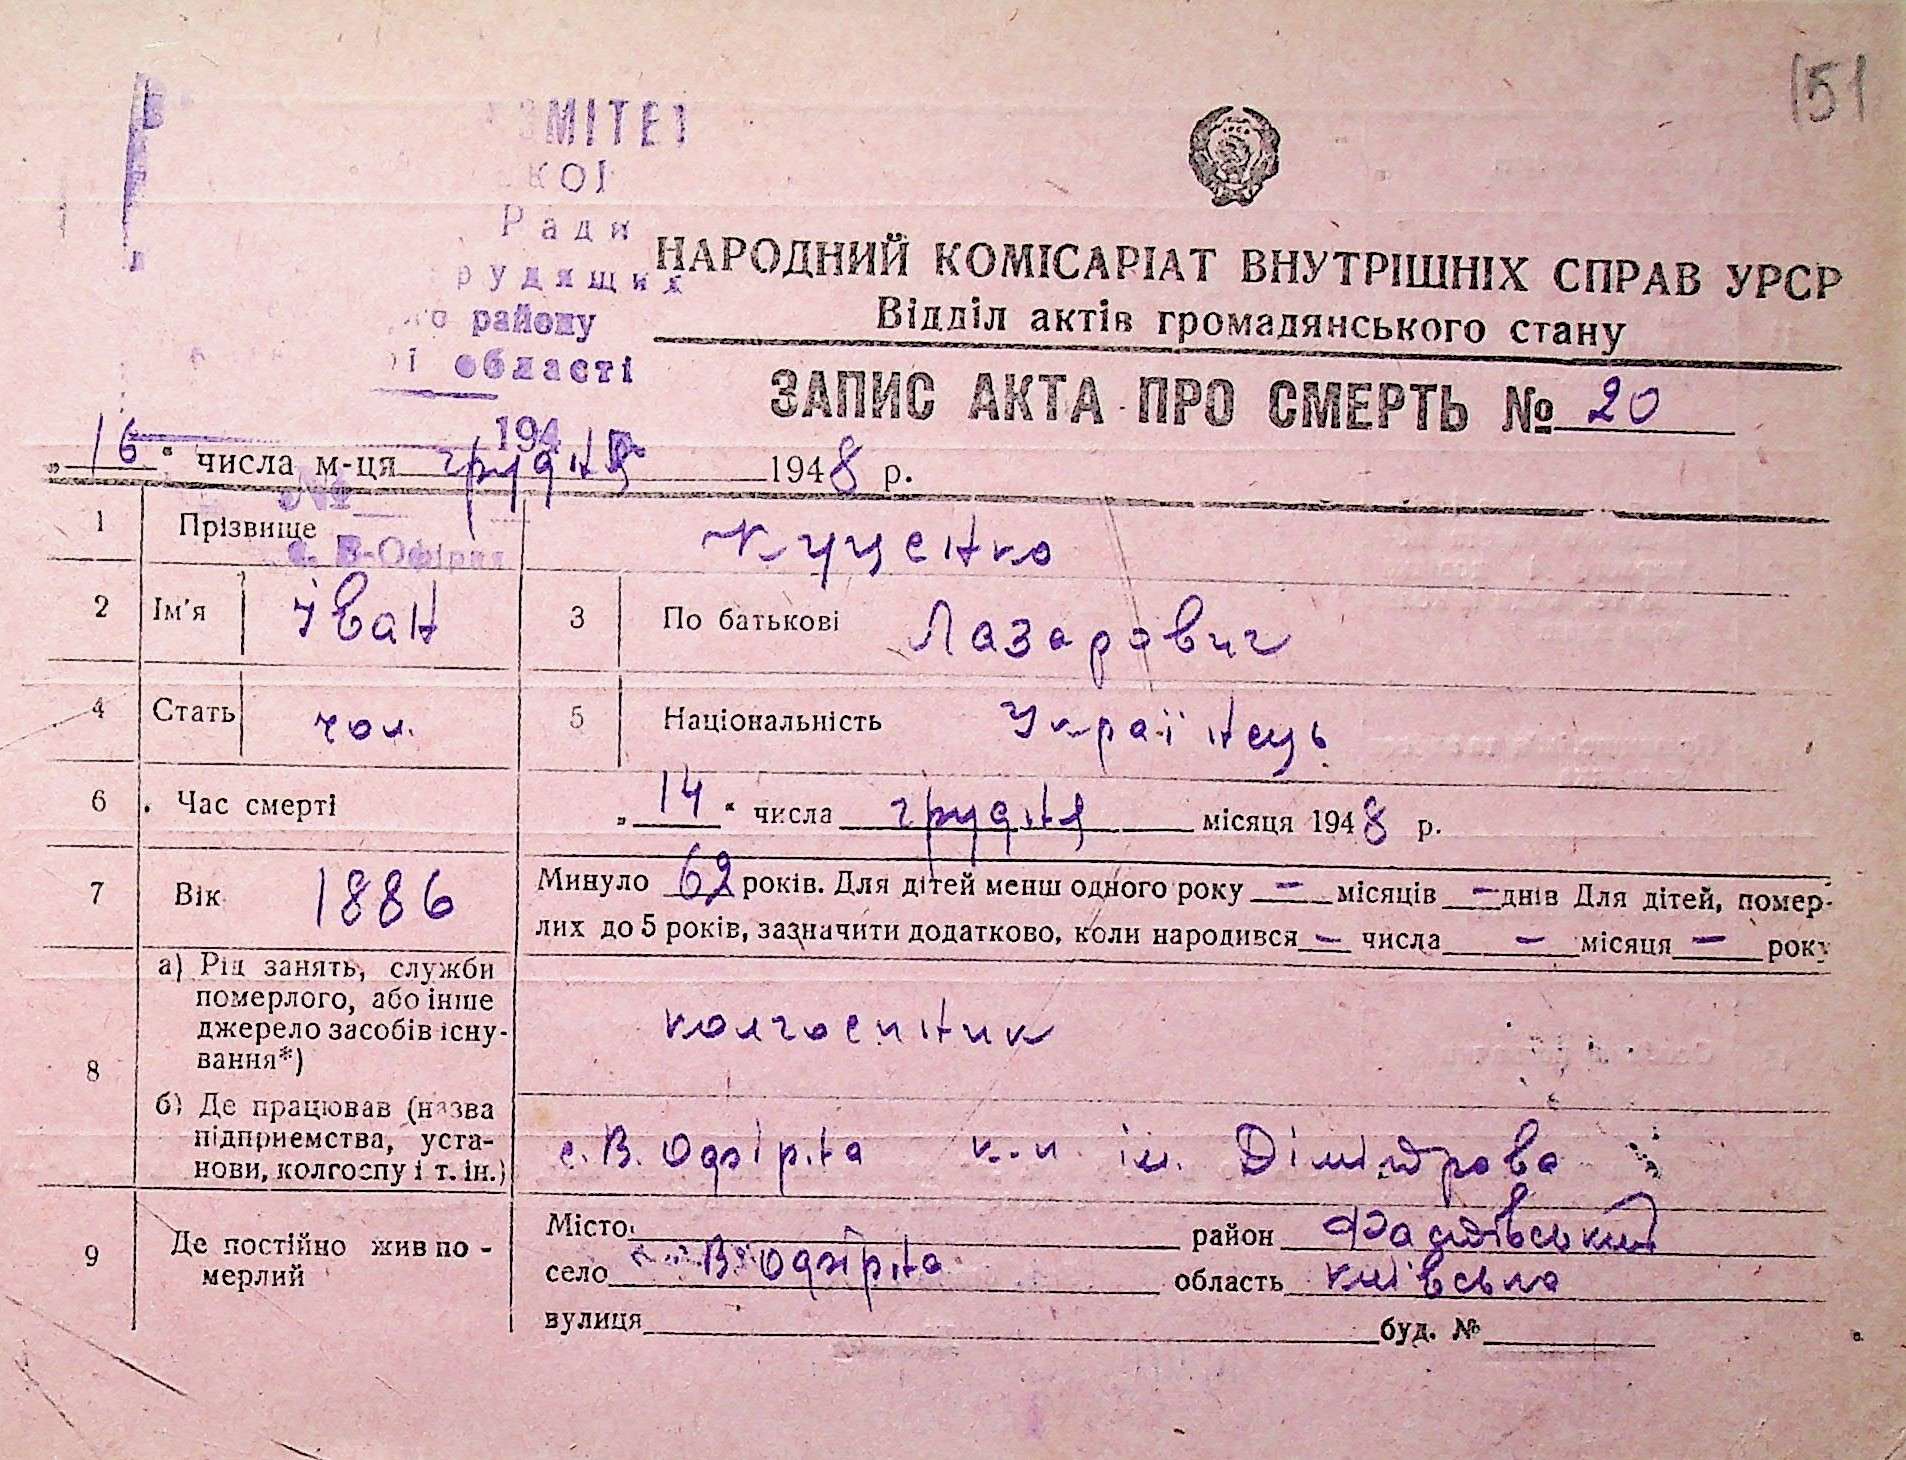 151
МІТЕТ
КОЇ
Ради
рудящих
го районy
ї області
194
№
с. В-Офірна
НАРОДНИЙ КОМІСАРІАТ ВНУТРІШНІХ СПРАВ УРСР
Відділ актів громадянського стану
ЗАПИС АКТА ПРО СМЕРТЬ № 20
„16“ числа м-ця грудня 1948 р.
1 Прізвище Куценко
2 Ім'я Іван 3 По батькові Лазарович
4 Стать чол. 5 Національність Українець
6 Час смерті „14“ числа грудня місяця 1948 р.
7 Вік 1886 Минуло 62 років. Для дітей менш одного року — місяців — днів Для дітей, помер-
лих до 5 років, зазначити додатково, коли народився — числа — місяця — року
8 а) Рід занять, служби
померлого, або інше
джерело засобів існу-
вання*)
колгоспник
б) Де працював (назва
підприємства, уста-
нови, колгоспу і т. ін.)
с. В. Офірна к-п ім. Дімітрова
9 Де постійно жив по-
мерлий
Місто район Фастівський
село с. В Офірна область Київська
вулиця буд. №